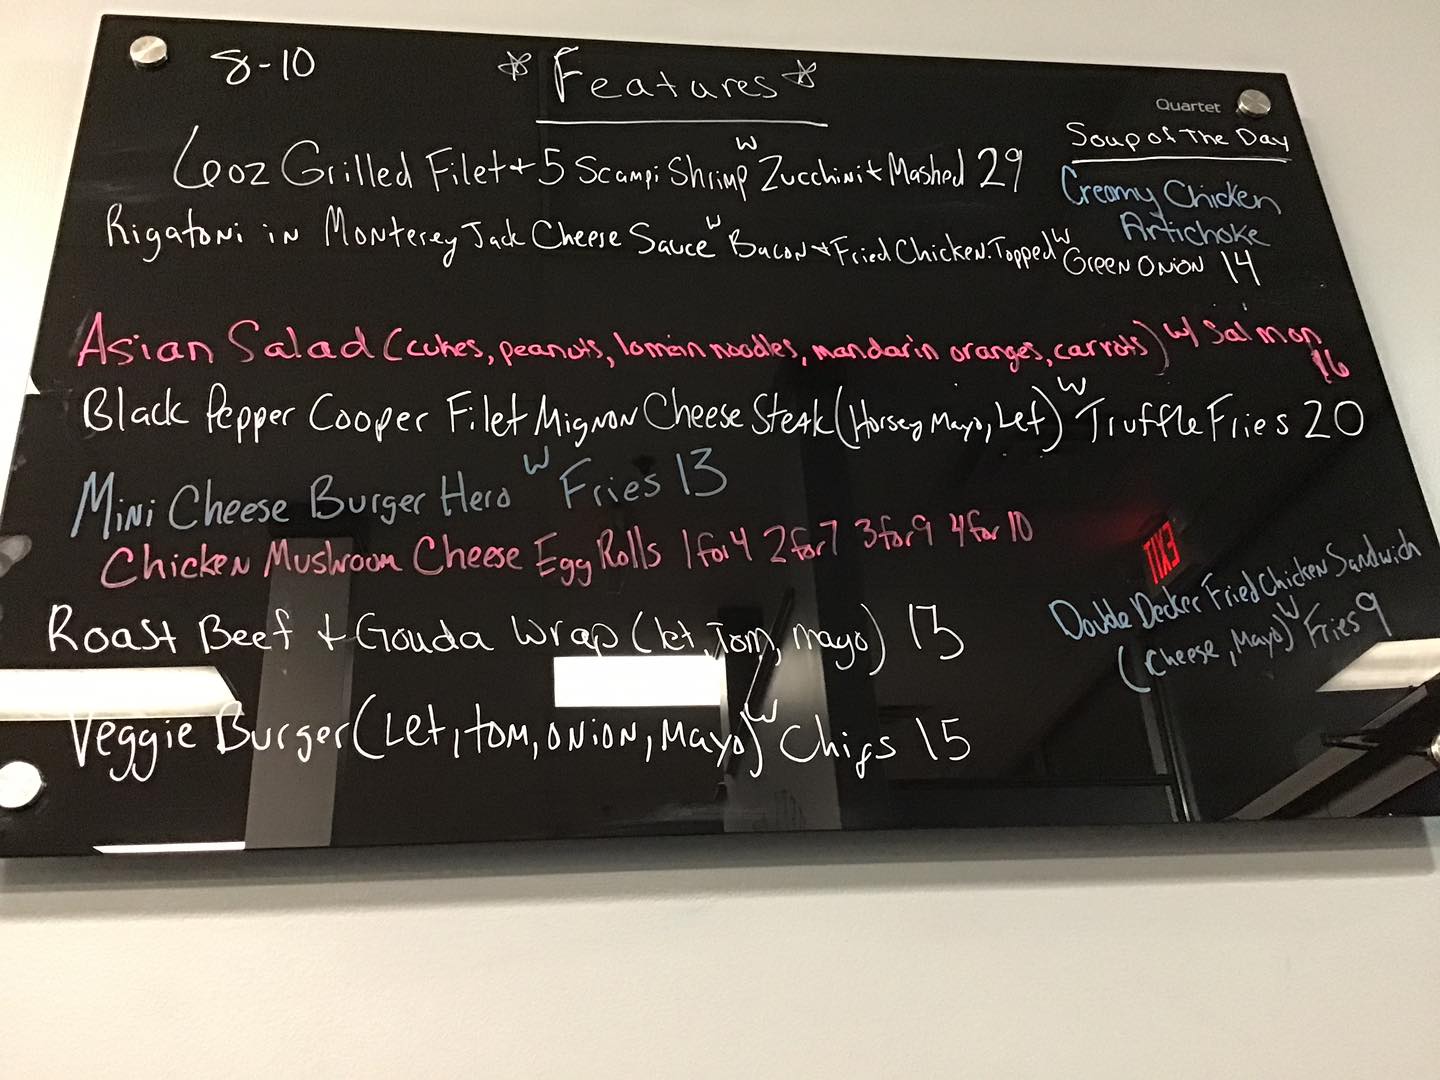 8-10
* Features *
Quartet
Soup of The Day
Creamy Chicken
Artichoke
6oz Grilled Filet + 5 Scampi Shrimp w Zucchini + Mashed 29
Rigatoni in Monterey Jack Cheese Sauce w Bacon + Fried Chicken. Topped w Green Onion 14
Asian Salad (cukes, peanuts, lomein noodles, mandarin oranges, carrots) w/ Salmon 16
Black Pepper Cooper Filet Mignon Cheese Steak (Horsey Mayo, Let) w Truffle Fries 20
Mini Cheese Burger Hero w Fries 13
Chicken Mushroom Cheese Egg Rolls 1 for 4 2 for 7 3 for 9 4 for 10
EXIT
Roast Beef + Gouda Wrap (let, Tom, mayo) 13
Double Decker Fried Chicken Sandwich
(Cheese, Mayo) w Fries 9
Veggie Burger (Let, tom, onion, Mayo) w Chips 15